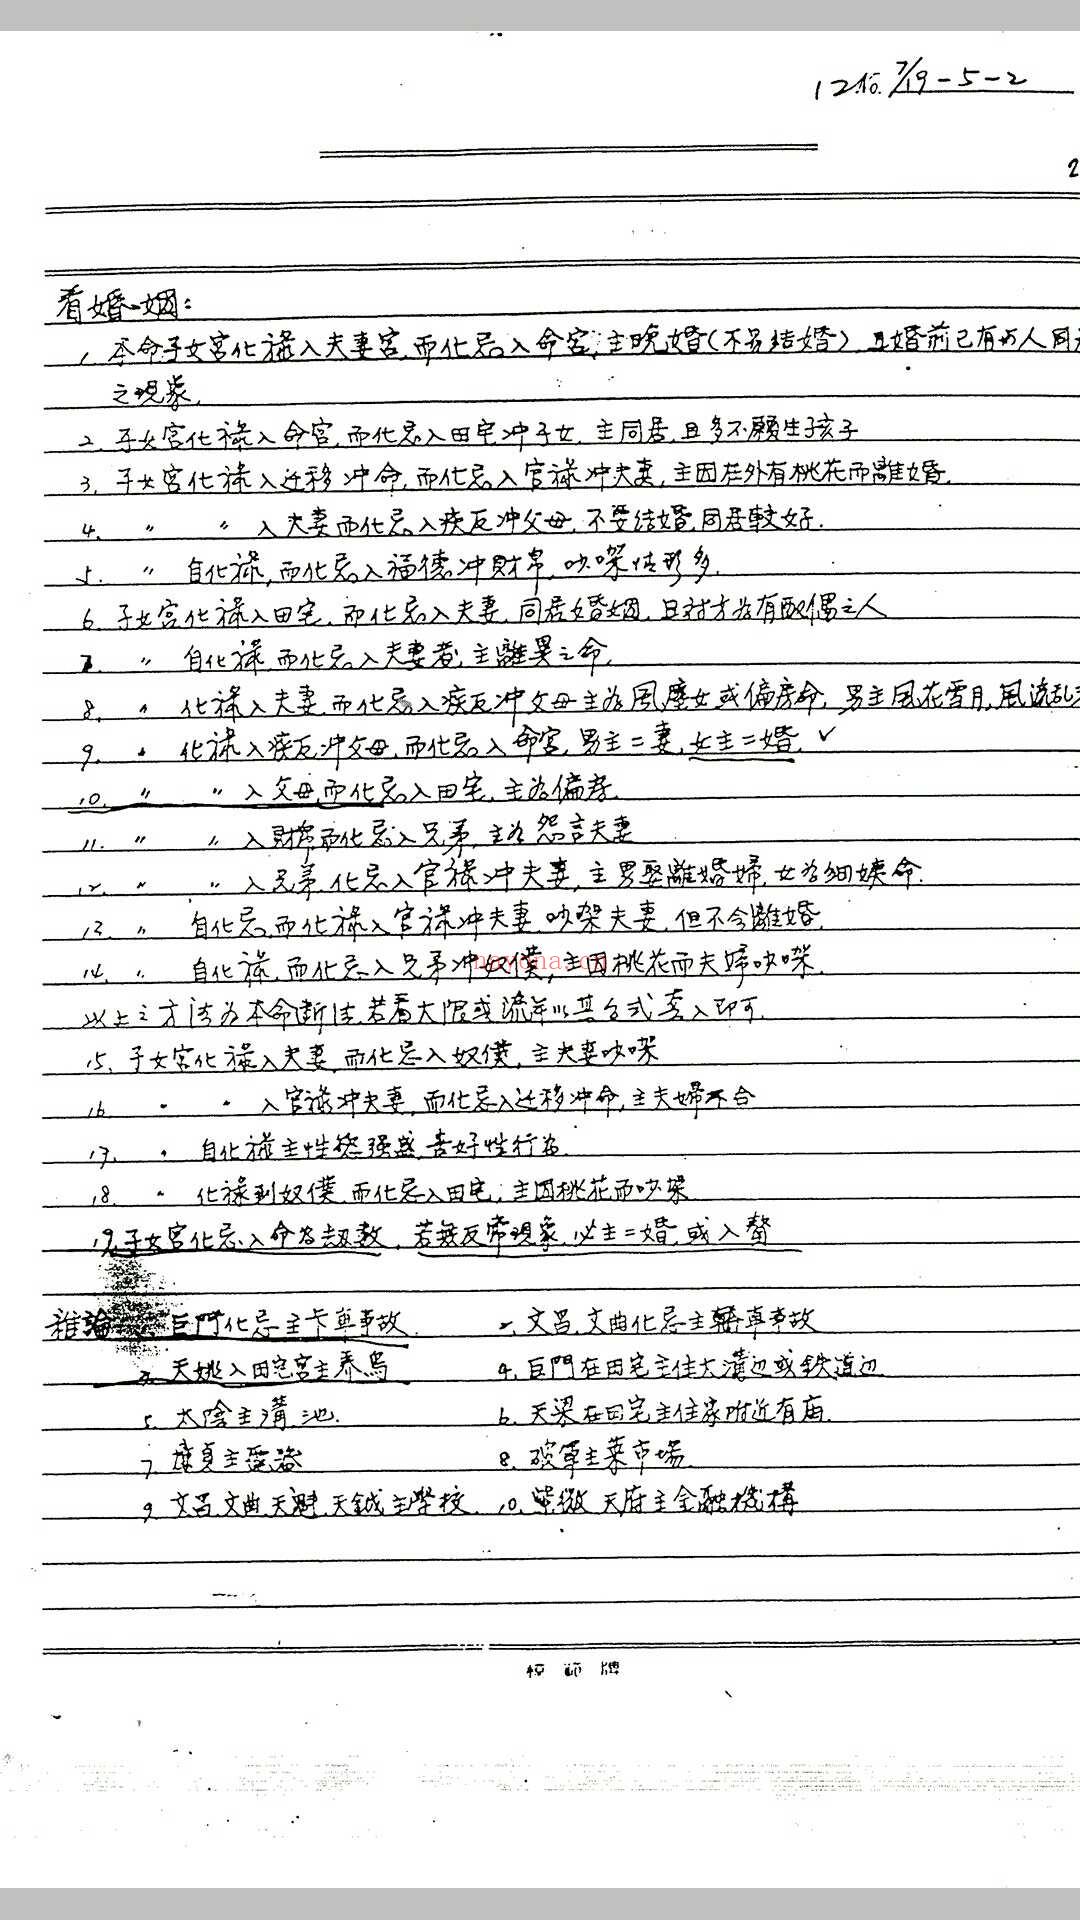 7/19-5-2
2
看婚姻:
1. 本命子女宮化祿入夫妻宮,而化忌入命宮,主晚婚(不易結婚),且婚前已有与人同
之現象.
2. 子女宮化祿入命宮,而化忌入田宅冲子女,主同居,且多不願生孩子
3. 子女宮化祿入迁移冲命,而化忌入官祿冲夫妻,主因在外有桃花而離婚.
4. 〃 〃 入夫妻而化忌入疾厄冲父母,不要結婚,同居較好.
5. 〃 自化祿,而化忌入福德冲財帛,吵架情形多.
6. 子女宮化祿入田宅,而化忌入夫妻,同居婚姻,且对方为有配偶之人
7. 〃 自化祿,而化忌入夫妻者,主離異之命.
8. 〃 化祿入夫妻,而化忌入疾厄冲父母主为風塵女或偏房命,男主風花雪月,風流乱
9. 〃 化祿入疾厄冲父母,而化忌入命宮,男主二妻,女主二婚. ✓
10. 〃 〃 入父母,而化忌入田宅,主为偏房.
11. 〃 〃 入財帛而化忌入兄弟,主为怨言夫妻
12. 〃 〃 入兄弟,化忌入官祿冲夫妻,主男娶離婚婦,女为細姨命.
13. 〃 自化忌,而化祿入官祿冲夫妻,吵架夫妻,但不会離婚.
14. 〃 自化祿,而化忌入兄弟冲奴僕,主因桃花而夫婦吵架.
以上之方法为本命斷法,若看大限或流年以其公式套入即可.
15. 子女宮化祿入夫妻,而化忌入奴僕,主夫妻吵架
16. 〃 〃 入官祿冲夫妻,而化忌入迁移冲命,主夫婦不合
17. 〃 自化祿主性慾强盛,喜好性行为.
18. 〃 化祿到奴僕,而化忌入田宅,主因桃花而吵架
19. 子女宮化忌入命为劫数,若無反常現象,必主二婚,或入贅
雜論 1. 巨門化忌主卡車事故. 2. 文昌,文曲化忌主轎車事故
3. 天姚入田宅宮主养鸟 4. 巨門在田宅主住大溝边或铁道边
5. 太陰主溝池. 6. 天梁在田宅主住家附近有庙.
7. 主電器 8. 破軍主菜市場.
9. 文昌,文曲,天魁,天鉞主學校. 10. 紫微,天府主金融機構
模範牌